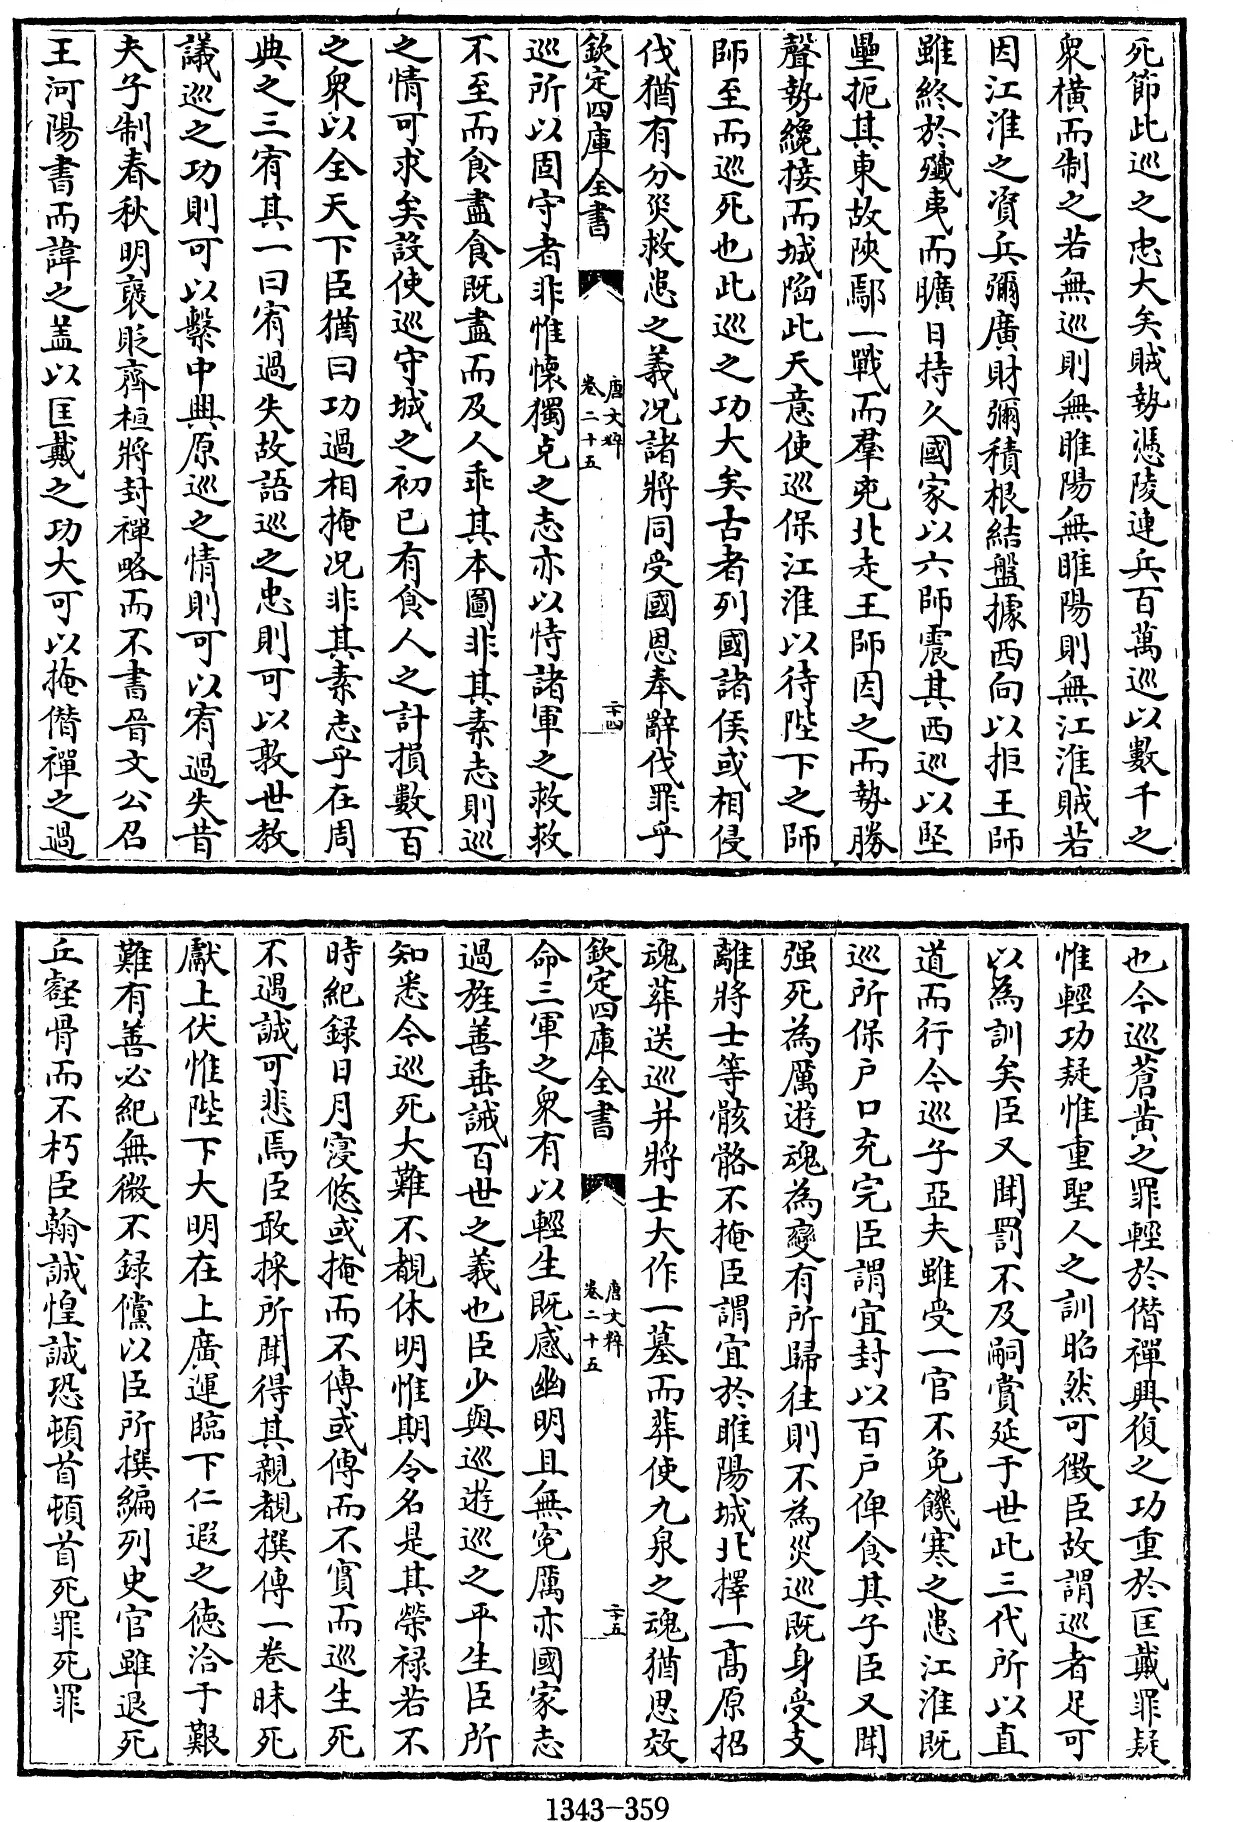 死節此巡之忠大矣賊勢憑陵連兵百萬巡以數千之
衆橫而制之若無巡則無睢陽無睢陽則無江淮賊若
因江淮之資兵彌廣財彌積根結盤據西向以拒王師
雖終於殲夷而曠日持久國家以六師震其西巡以堅
壘扼其東故陜鄢一戰而羣兇北走王師因之而勢勝
聲勢纔接而城陷此天意使巡保江淮以待陛下之師
師至而巡死也此巡之功大矣古者列國諸侯或相侵
伐猶有分災救患之義况諸將同受國恩奉辭伐罪乎
欽定四庫全書
唐文粹
卷二十五
二十四
巡所以固守者非惟懷獨克之志亦以恃諸軍之救救
不至而食盡食既盡而及人乖其本圖非其素志則巡
之情可求矣設使巡守城之初已有食人之計損數百
之衆以全天下臣猶曰功過相掩况非其素志乎在周
典之三宥其一曰宥過失故語巡之忠則可以敦世教
議巡之功則可以繫中興原巡之情則可以宥過失昔
夫子制春秋明襃貶齊桓將封禪略而不書晉文公召
王河陽書而諱之盖以匡戴之功大可以掩僭禪之過
也今巡蒼黄之罪輕於僭禪興復之功重於匡戴罪疑
惟輕功疑惟重聖人之訓昭然可徴臣故謂巡者足可
以為訓矣臣又聞罰不及嗣賞延于世此三代所以直
道而行今巡子亞夫雖受一官不免饑寒之患江淮既
巡所保户口充完臣謂宜封以百户俾食其子臣又聞
强死為厲遊魂為變有所歸往則不為災巡既身受支
離將士等骸骼不掩臣謂宜於睢陽城北擇一高原招
魂葬送巡并將士大作一墓而葬使九泉之魂猶思效
欽定四庫全書
唐文粹
卷二十五
二十五
命三軍之衆有以輕生既感幽明且無寃厲亦國家志
過旌善垂誡百世之義也臣少與巡遊巡之平生臣所
知悉今巡死大難不覩休明惟期令名是其榮禄若不
時紀録日月寖悠或掩而不傳或傳而不實而巡生死
不遇誠可悲焉臣敢採所聞得其親覩撰傳一卷昧死
獻上伏惟陛下大明在上廣運臨下仁遐之徳洽于艱
難有善必紀無微不録儻以臣所撰編列史官雖退死
丘壑骨而不朽臣翰誠惶誠恐頓首頓首死罪死罪
1343-359